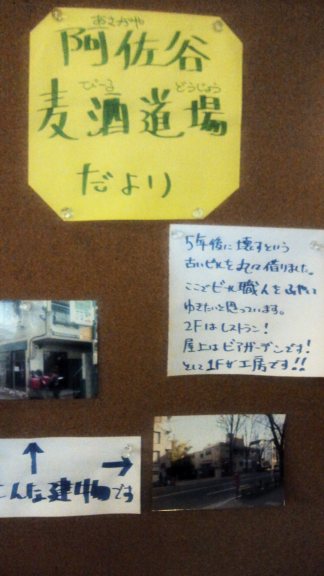 あさがや
阿佐谷
びーる どうじょう
麦酒道場
だより
5年後に壊すという
古いビルを丸ごと借りました。
ここでビール職人を
ゆきたいと思っています。
2Fはレストラン!
屋上はビアガーデンです!
そして1Fが工房です!!
↑
→
こんな建物です